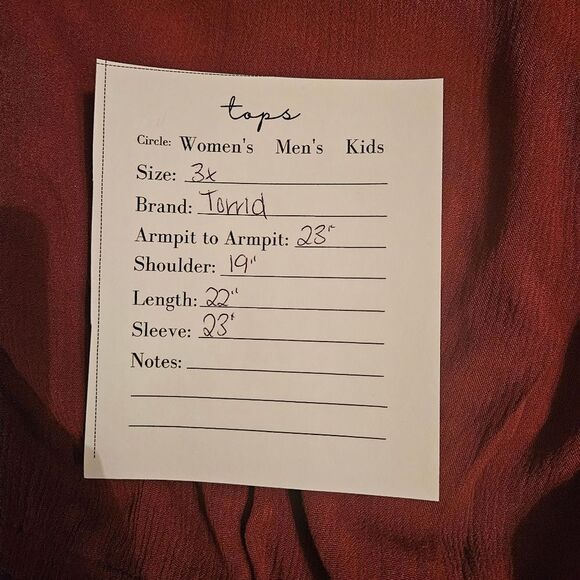 tops
Circle: Women's Men's Kids
Size: 3x
Brand: Torrid
Armpit to Armpit: 23"
Shoulder: 19"
Length: 22"
Sleeve: 23"
Notes: